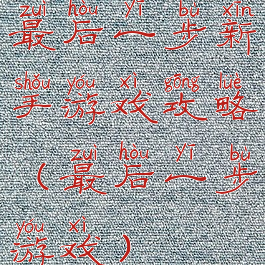 zuì hòu yī bù xīn
最后一步新
shǒu yóu xì gōng lüè
手游戏攻略
zuì hòu yī bù
（最后一步
yóu xì
游戏）